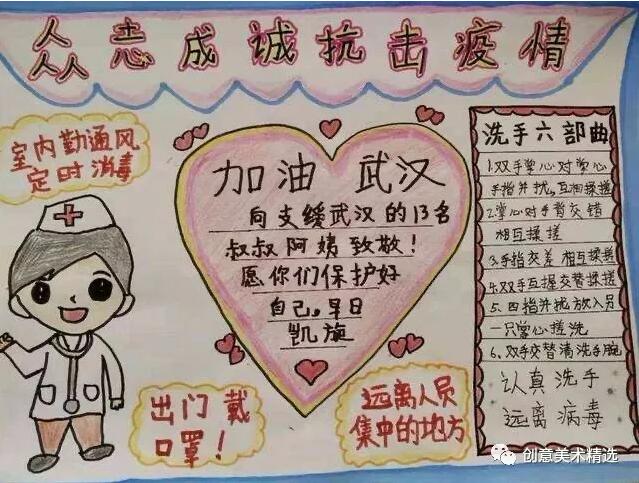 众志成诚抗击疫情
室内勤通风
定时消毒
加油 武汉
向支缓武汉的13名
叔叔阿姨致敬！
愿你们保护好
自己。早日
凯旋
出门戴
口罩！
远离人员
集中的地方
洗手六部曲
1.双手掌心对掌心
手指并拢,互相揉搓
2.掌心对手背交错
相互揉搓
3.手指交差 相互揉搓
4.双手互握交替揉搓
5.四指并拢放入员
一只掌心搓洗
6、双手交替清洗手腕
认真洗手
远离病毒
创意美术精选